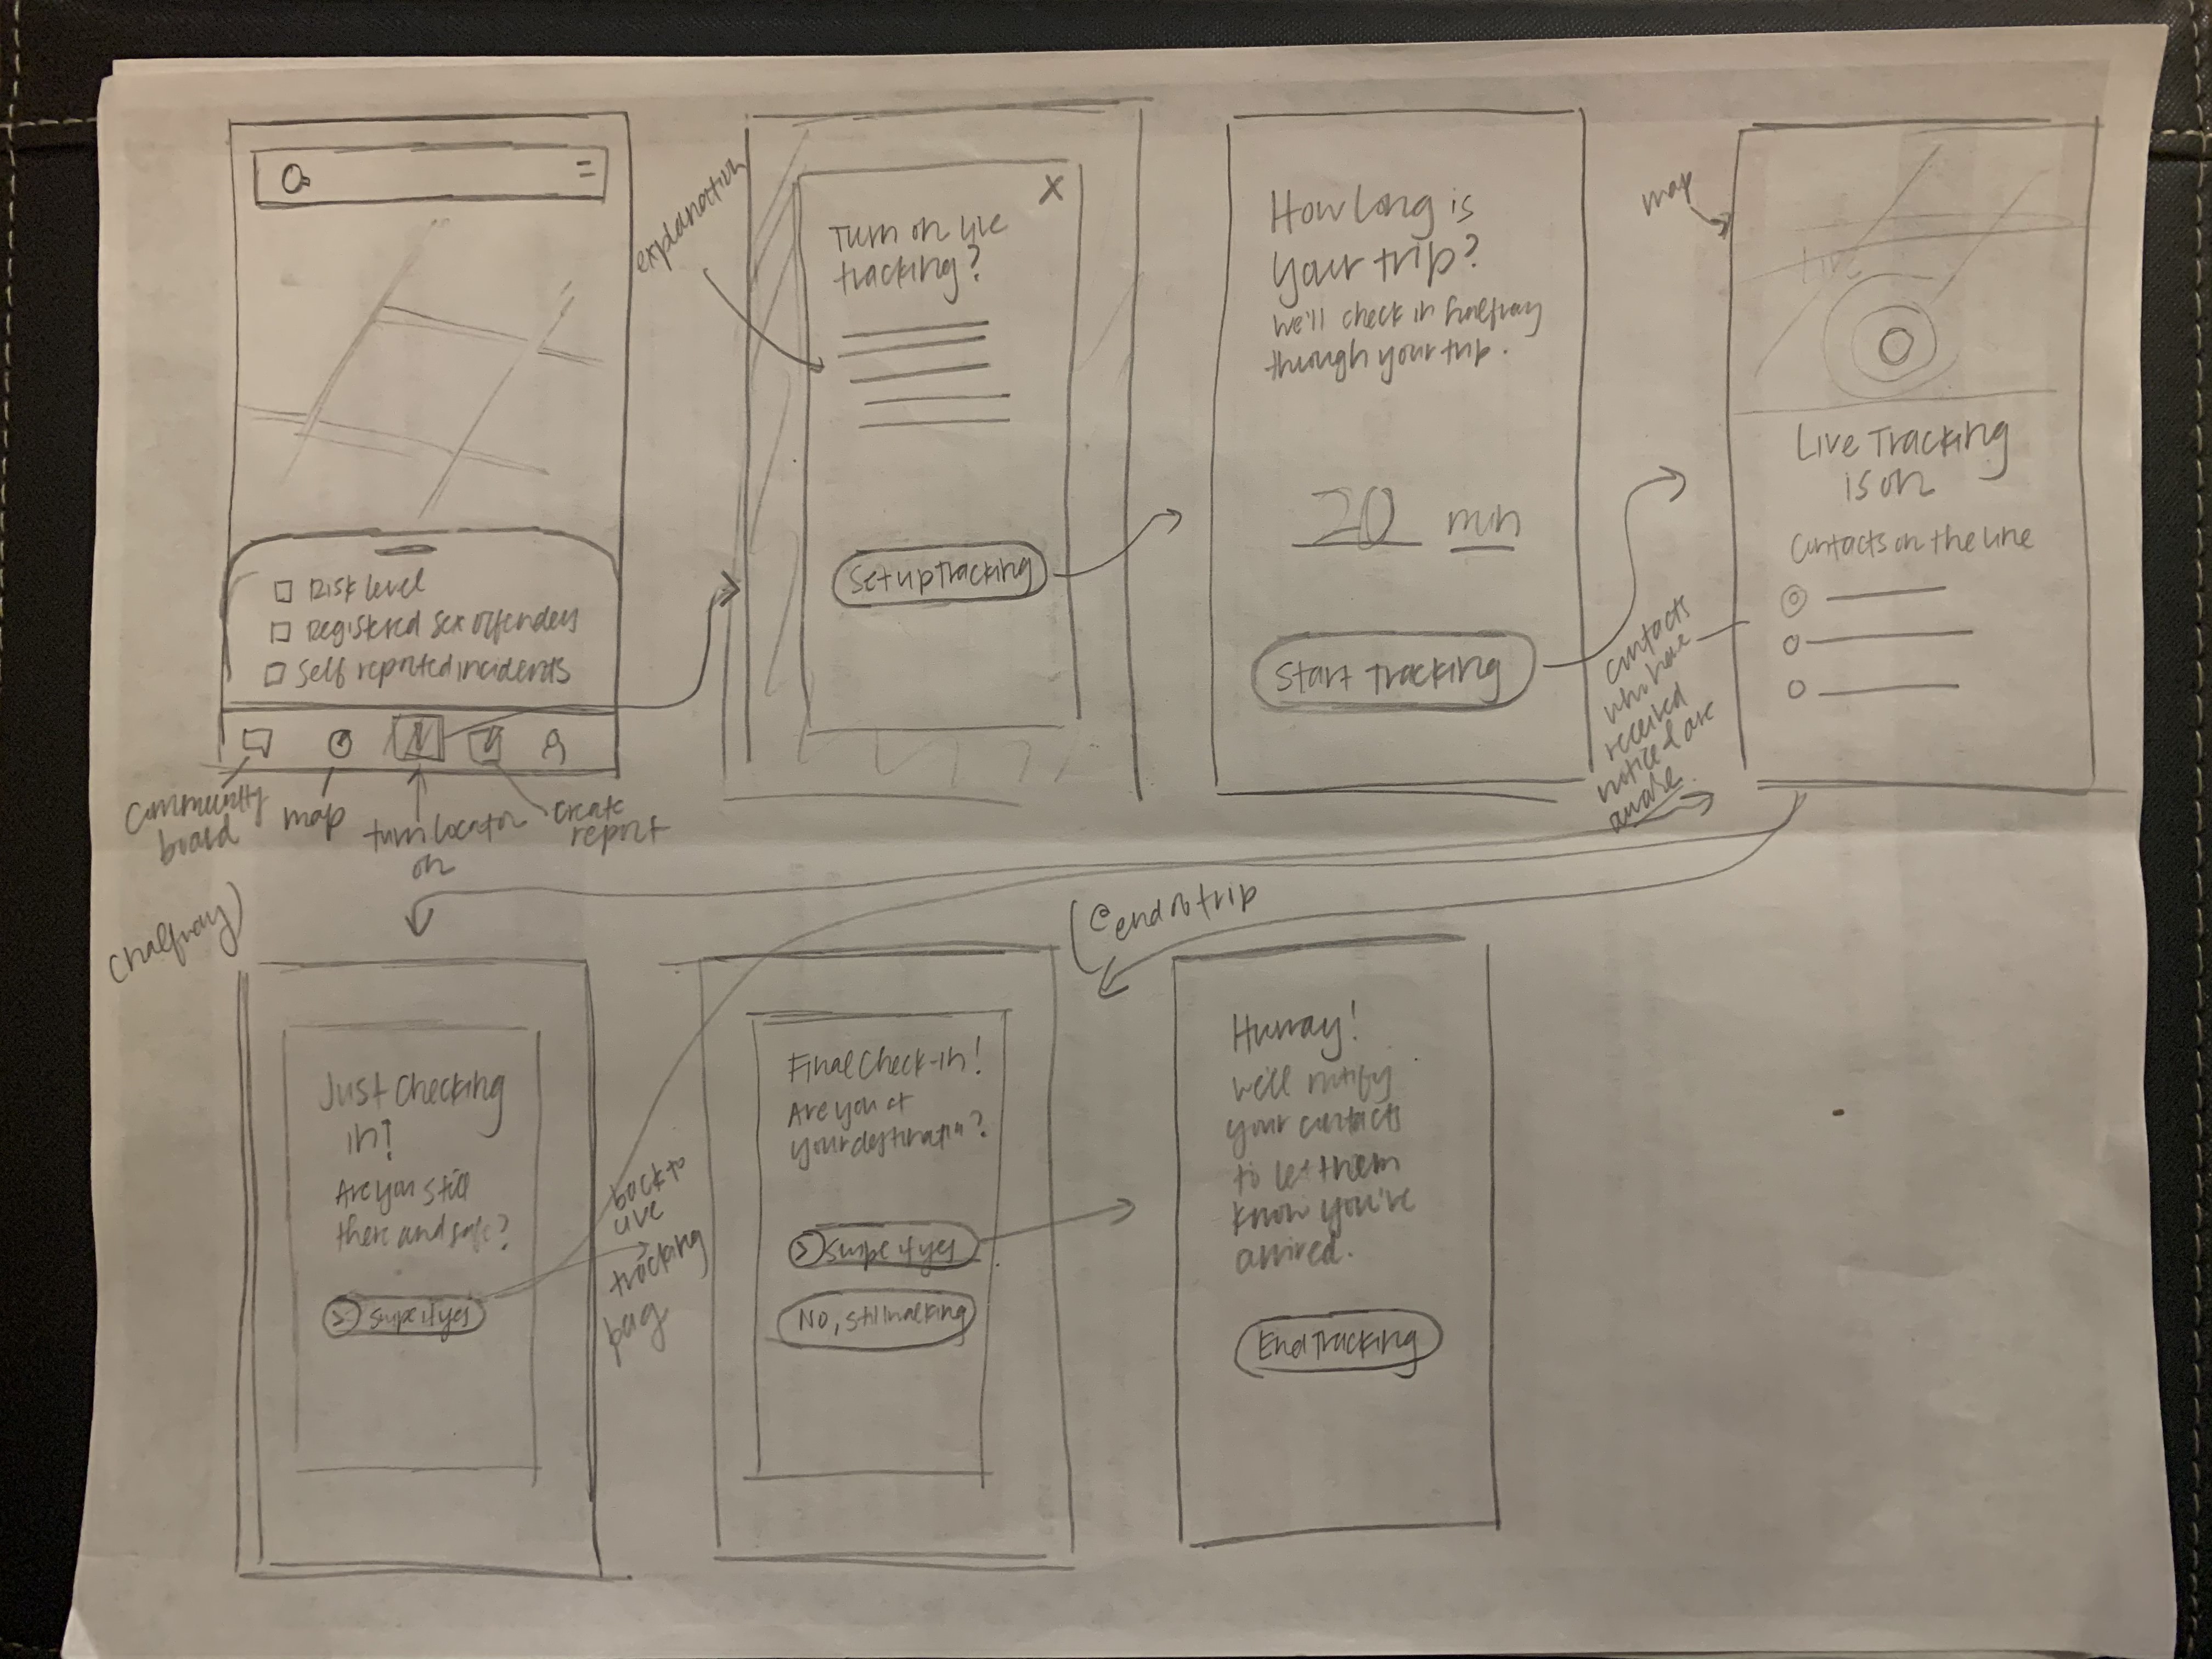 Risk level
Registered sex offenders
Self reported incidents
community
board
map
turn locator
on
create
report
explanation
X
Turn on live
tracking?
Set up Tracking
How long is
your trip?
we'll check in halfway
through your trip.
20 min
Start Tracking
map
Live
Live Tracking
is on
Contacts on the line
contacts
who have
received
notice & are
aware.
(halfway)
Just Checking
in!
Are you still
there and safe?
> swipe if yes
back to
live
tracking
pag
(@ end of trip
Final Check-in!
Are you at
your destination?
> swipe if yes
No, still walking
Hurray!
we'll notify
your contacts
to let them
know you've
arrived.
End Tracking